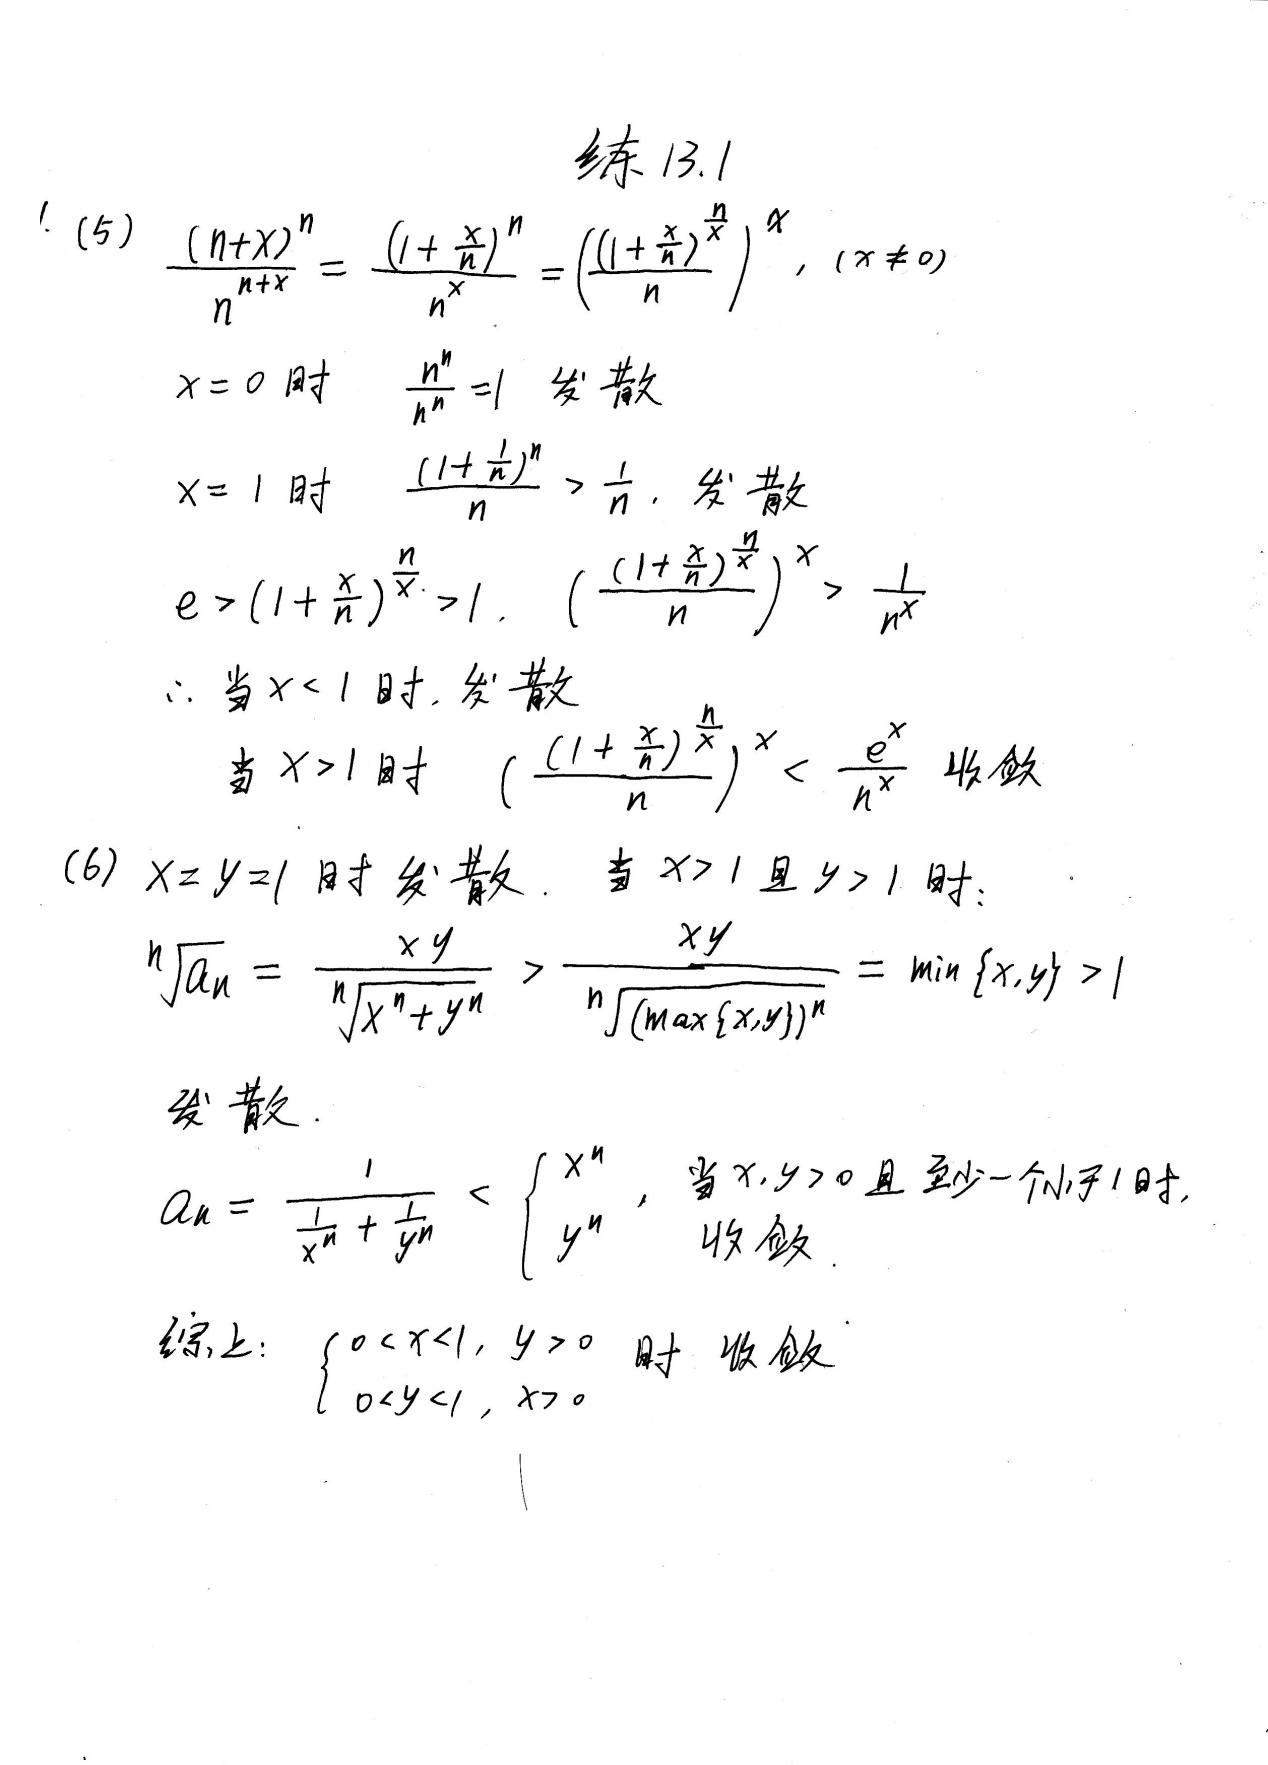 练 13.1
1. (5) (n+x)^n / n^(n+x) = (1+x/n)^n / n^x = ((1+x/n)^(n/x) / n)^x , (x≠0)
x=0时 n^n/n^n =1 发散
x=1时 (1+1/n)^n / n > 1/n . 发散
e>(1+x/n)^(n/x)>1. ((1+x/n)^(n/x) / n)^x > 1/n^x
∴ 当x<1时. 发散
当x>1时 ((1+x/n)^(n/x) / n)^x < e^x/n^x 收敛
(6) x=y=1时发散. 当x>1且y>1时:
ⁿ√a_n = xy / ⁿ√(x^n+y^n) > xy / ⁿ√((max{x,y})^n) = min{x,y}>1
发散.
a_n = 1 / (1/x^n + 1/y^n) < { x^n y^n , 当x,y>0且至少一个小于1时,
收敛.
综上: { 0<x<1, y>0 时收敛
0<y<1, x>0